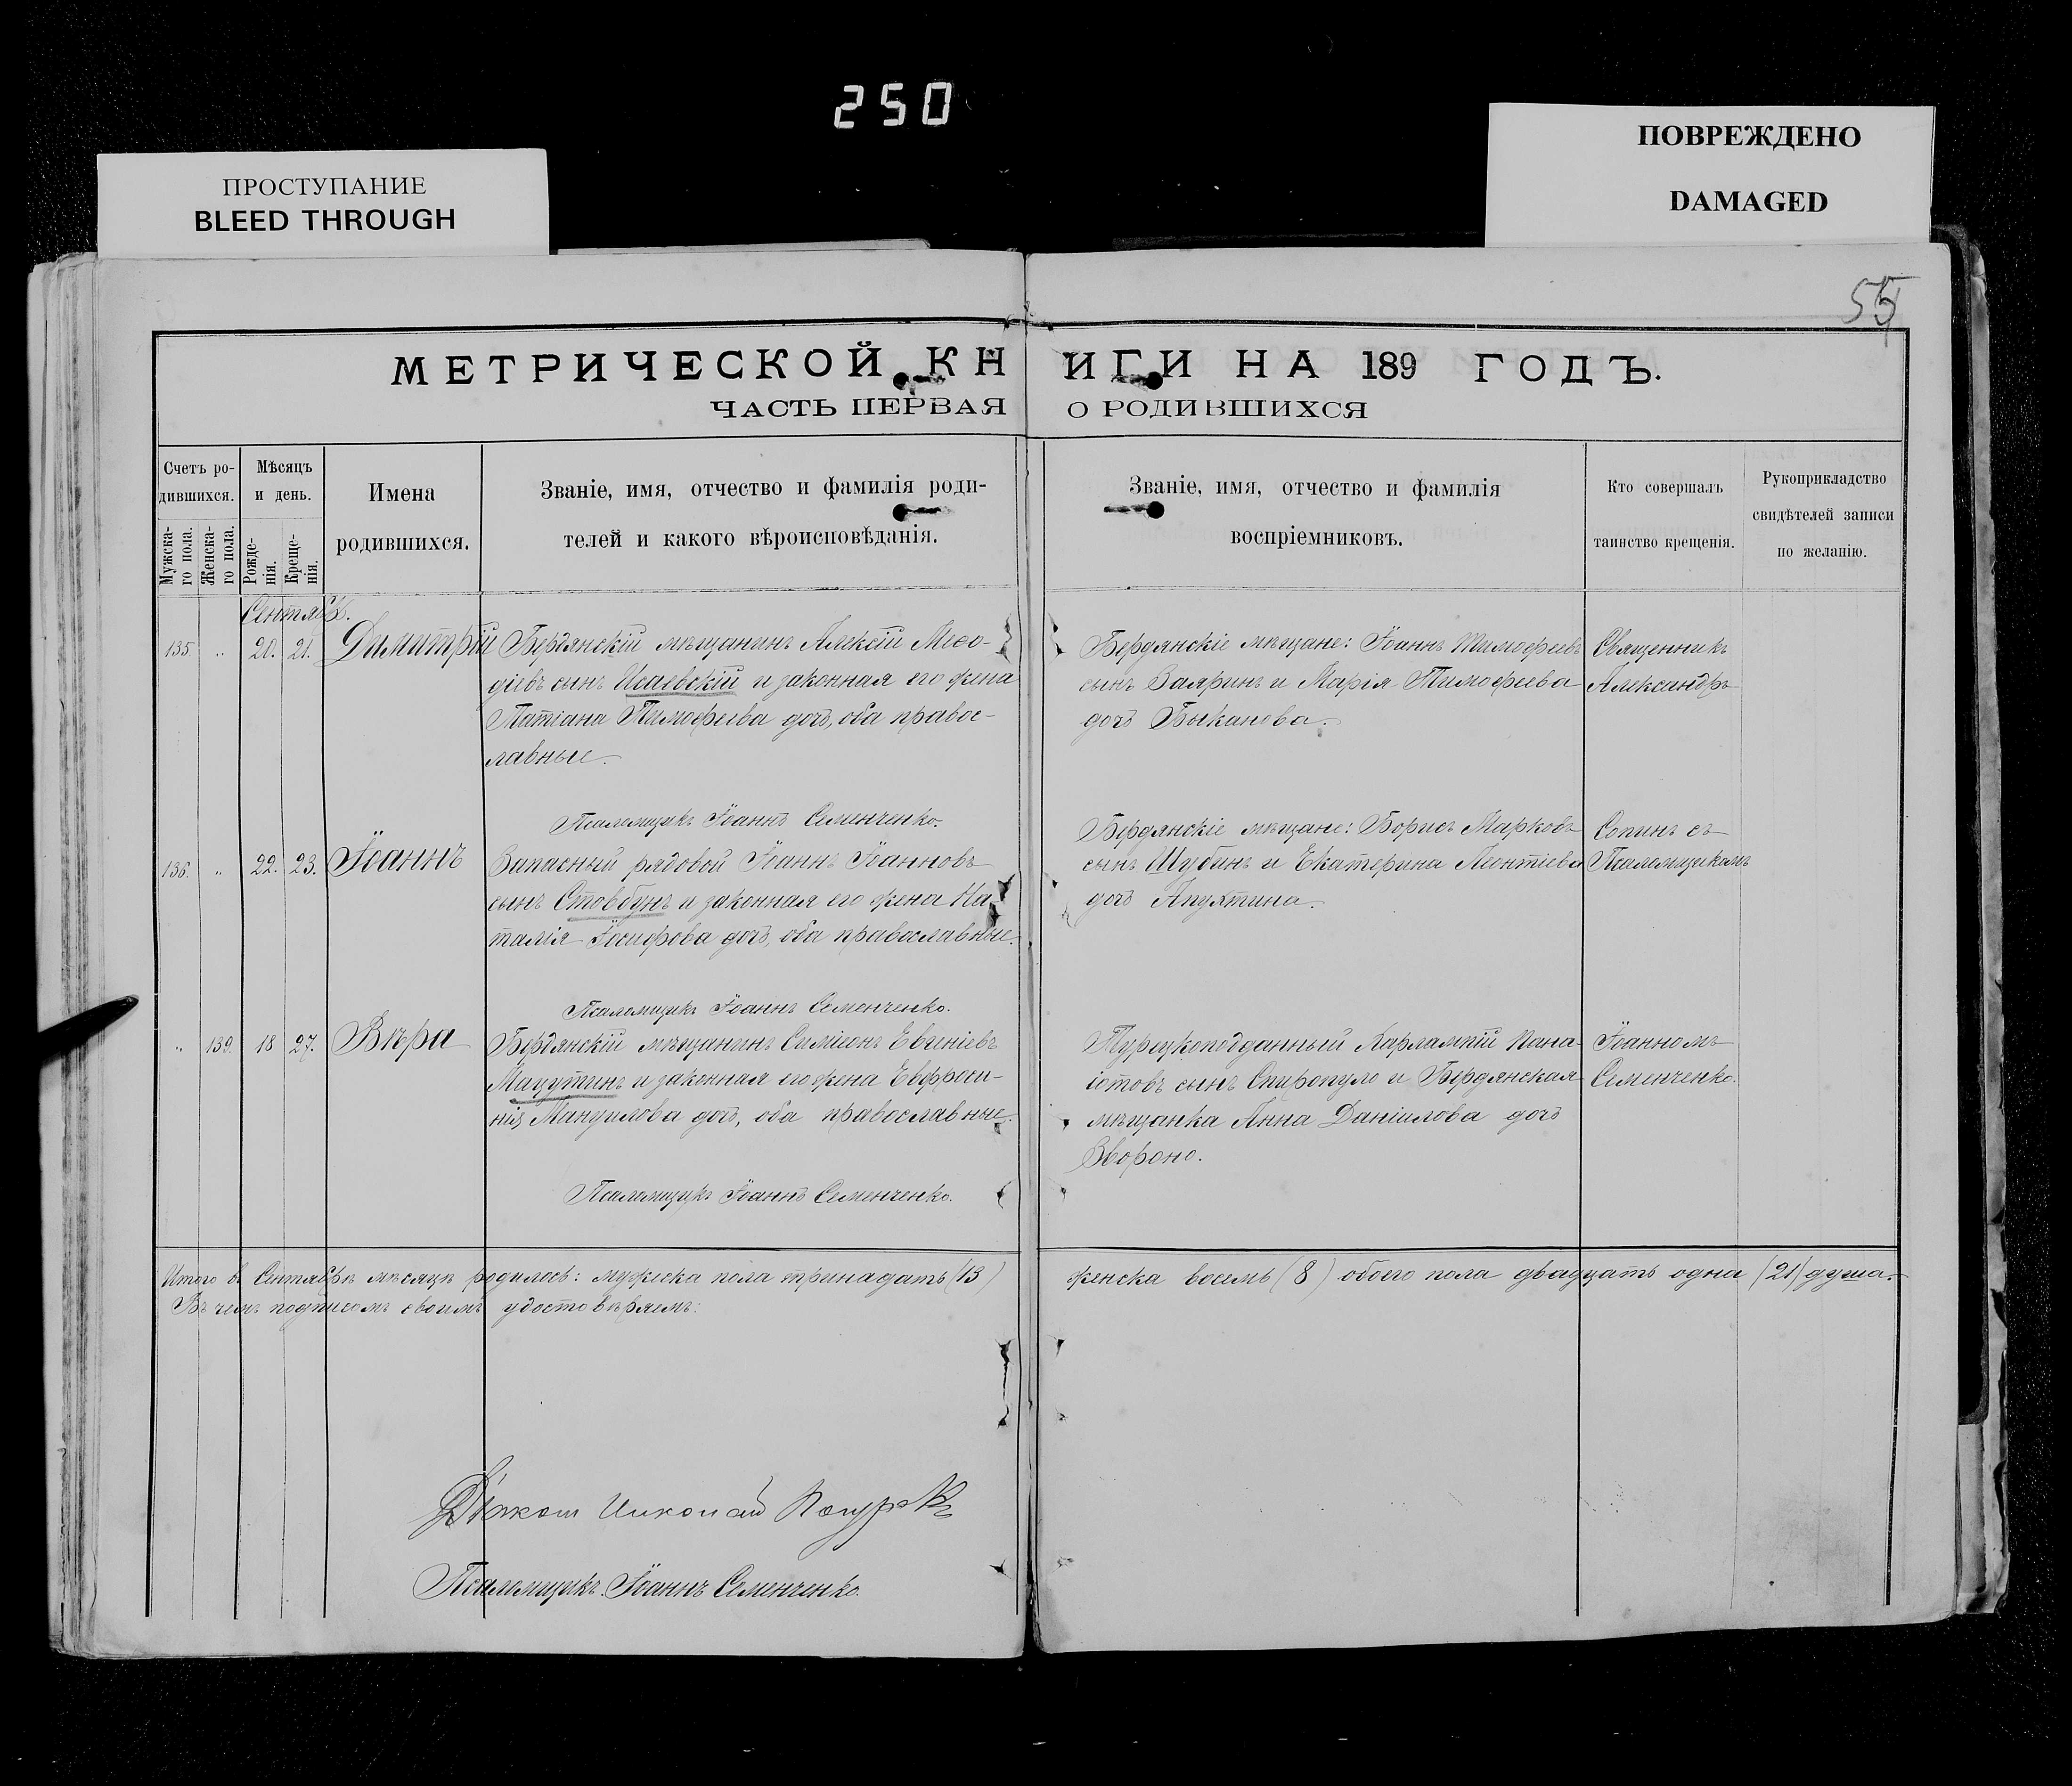 250
ПРОСТУПАНИЕ
BLEED THROUGH
ПОВРЕЖДЕНО
DAMAGED
55
МЕТРИЧЕСКОЙ КНИГИ НА 189 ГОДЪ.
ЧАСТЬ ПЕРВАЯ О РОДИВШИХСЯ
Счетъ ро-
дившихся.
Мужска-
го пола.
Женска-
го пола.
Мѣсяцъ
и день.
Рожде-
нія.
Креще-
нія.
Имена
родившихся.
Званіе, имя, отчество и фамилія роди-
телей и какого вѣроисповѣданія.
Званіе, имя, отчество и фамилія
воспріемниковъ.
Кто совершалъ
таинство крещенія.
Рукоприкладство
свидѣтелей записи
по желанію.
Сентяб.
135 „ 20. 21. Димитрій
Бердянскій мѣщанинъ Алексій Меѳо-
діевъ сынъ Исаевскій и законная его жена
Татіана Тимофеева дочь, оба правос-
лавные.
Псаломщикъ Іоаннъ Семенченко.
Бердянскіе мѣщане: Іоаннъ Тимофеевъ
сынъ Заяринъ и Марія Тимофеева
дочь Быканова.
Священникъ
Александръ
136. „ 22. 23. Іоаннъ
Запасный рядовой Іоаннъ Іоанновъ
сынъ Стовбунъ и законная его жена На-
талія Іосифова дочь, оба православные.
Псаломщикъ Іоаннъ Семенченко.
Бердянскіе мѣщане: Борисъ Марковъ
сынъ Шубинъ и Екатерина Леонтіева
дочь Апухтина.
Сопинъ съ
Псаломщикомъ
„ 139. 18 27. Вѣра
Бердянскій мѣщанинъ Симеонъ Евѳиміевъ
Мацутинъ и законная его жена Евфроси-
нія Мануилова дочь, оба православные.
Псаломщикъ Іоаннъ Семенченко.
Турецкоподданный Харлампій Пана-
іотовъ сынъ Спиропуло и Бердянская
мѣщанка Анна Даніилова дочь
Звороно.
Іоанномъ
Семенченко.
Итого въ Сентябрѣ мѣсяцѣ родилось: мужеска пола тринадцать (13) женска восемь (8) обоего пола двадцать одна (21) душа.
Въ чемъ подписомъ своимъ удостовѣряемъ:
Діакон Николай
Псаломщикъ Іоаннъ Семенченко.